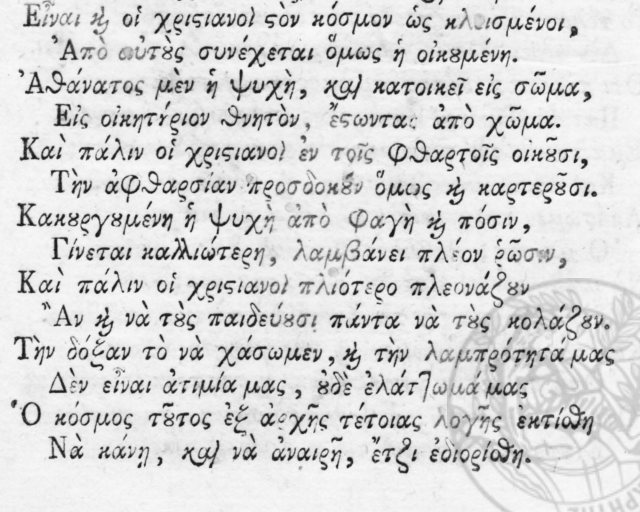 Εἶναι ϗ οἱ χριϛιανοὶ ϛὸν κόσμον ὡς κλεισμένοι,
Ἀπὸ αὐτοὺς συνέχεται ὅμως ἡ οἰκουμένη.
Ἀθάνατος μὲν ἡ ψυχὴ, καὶ κατοικεῖ εἰς σῶμα,
Εἰς οἰκητήριον θνητὸν, ἔϛωντας ἀπὸ χῶμα.
Καὶ πάλιν οἱ χριϛιανοὶ ἐν τοῖς φθαρτοῖς οἰκοῦσι,
Τὴν ἀφθαρσίαν προσδοκοῦν ὅμως ϗ καρτεροῦσι.
Κακουργουμένη ἡ ψυχὴ ἀπὸ φαγὴ ϗ πόσιν,
Γίνεται καλλιώτερη, λαμβάνει πλέον ῥῶσιν,
Καὶ πάλιν οἱ χριϛιανοὶ πλιότερο πλεονάζουν
Ἂν ϗ νὰ τοὺς παιδεύουσι πάντα νὰ τοὺς κολάζουν.
Τὴν δόξαν τὸ νὰ χάσωμεν, ϗ τὴν λαμπρότητα μας
Δὲν εἶναι ἀτιμία μας, οὐδὲ ἐλάττωμά μας
Ὁ κόσμος τοῦτος ἐξ ἀρχῆς τέτοιας λογῆς ἐκτίσθη
Νὰ κάνῃ, καὶ νὰ ἀναιρῇ, ἔτζι ἐδιορίσθη.